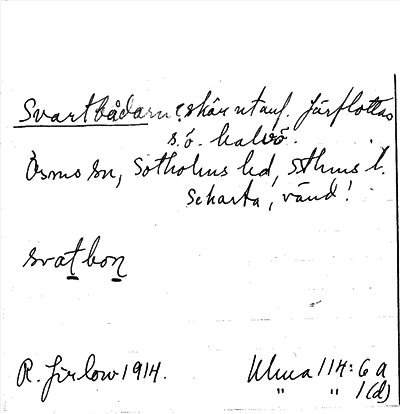 Svartbådarne, skär utanf. Järflottas
s.ö. halvö.
Ösmo sn, Sotholms hd, Sthms l.
Se karta, vänd!
svatbon
R. Jirlow 1914. Ulma 114: 6 a
" " 1(d)